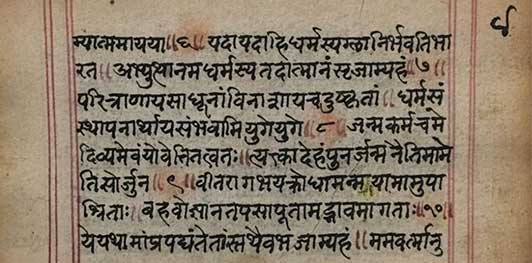 म्यात्ममायया ॥६॥ यदायदाहिधर्मस्यग्लानिर्भवतिभा
रत अभ्युत्थानमधर्मस्यतदात्मानंसृजाम्यहं॥७॥
परित्राणायसाधूनांविनाशायचदुष्कृतां॥धर्मसं
स्थापनार्थायसंभवामियुगेयुगे॥८॥जन्मकर्मचमे
दिव्यमेवंयोवेत्तितत्वतः॥त्यक्त्वादेहंपुनर्जन्मनैतिमामे
तिसोर्जुन॥९॥वीतरागभयक्रोधामन्मयामामुपा
श्रिताः॥बहवोज्ञानतपसापूतामद्भावमागताः॥१०॥
येयथामांप्रपद्यंतेतांस्तथैवभजाम्यहं॥ममवर्त्मानु